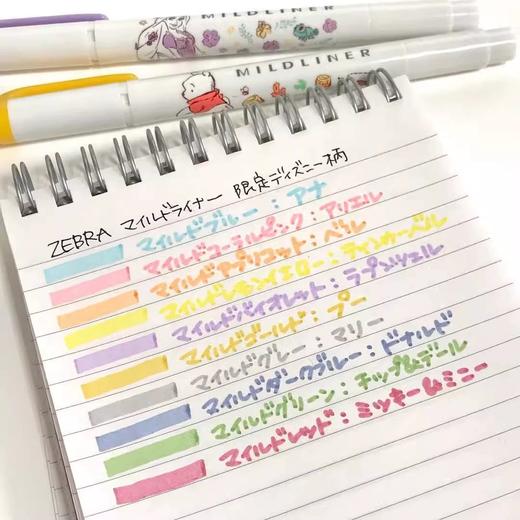 MILDLINER
MILDLINER
ZEBRA マイルドライナー 限定ディズニー柄
マイルドブルー：アナ
マイルドコーラルピンク：アリエル
マイルドアプリコット：ベル
マイルドレモンイエロー：ティンカーベル
マイルドバイオレット：ラプンツェル
マイルドゴールド：プー
マイルドグレー：マリー
マイルドダークブルー：ドナルド
マイルドグリーン：チップ&デール
マイルドレッド：ミッキー&ミニー